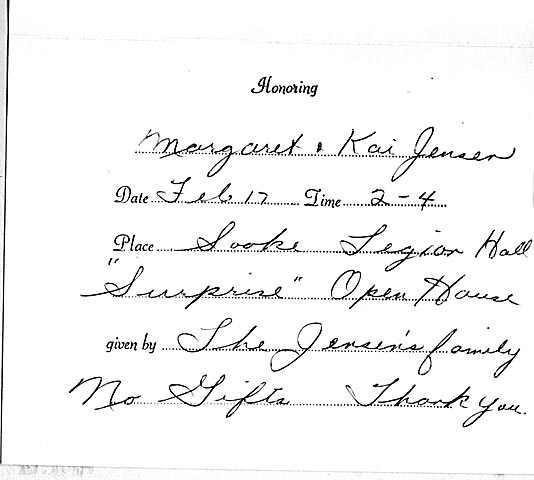 Honoring
Margaret & Kai Jensen
Date Feb 17 Time 2-4
Place Sooke Legion Hall
"Surprise" Open House
given by The Jensen's family
No Gifts Thank you.